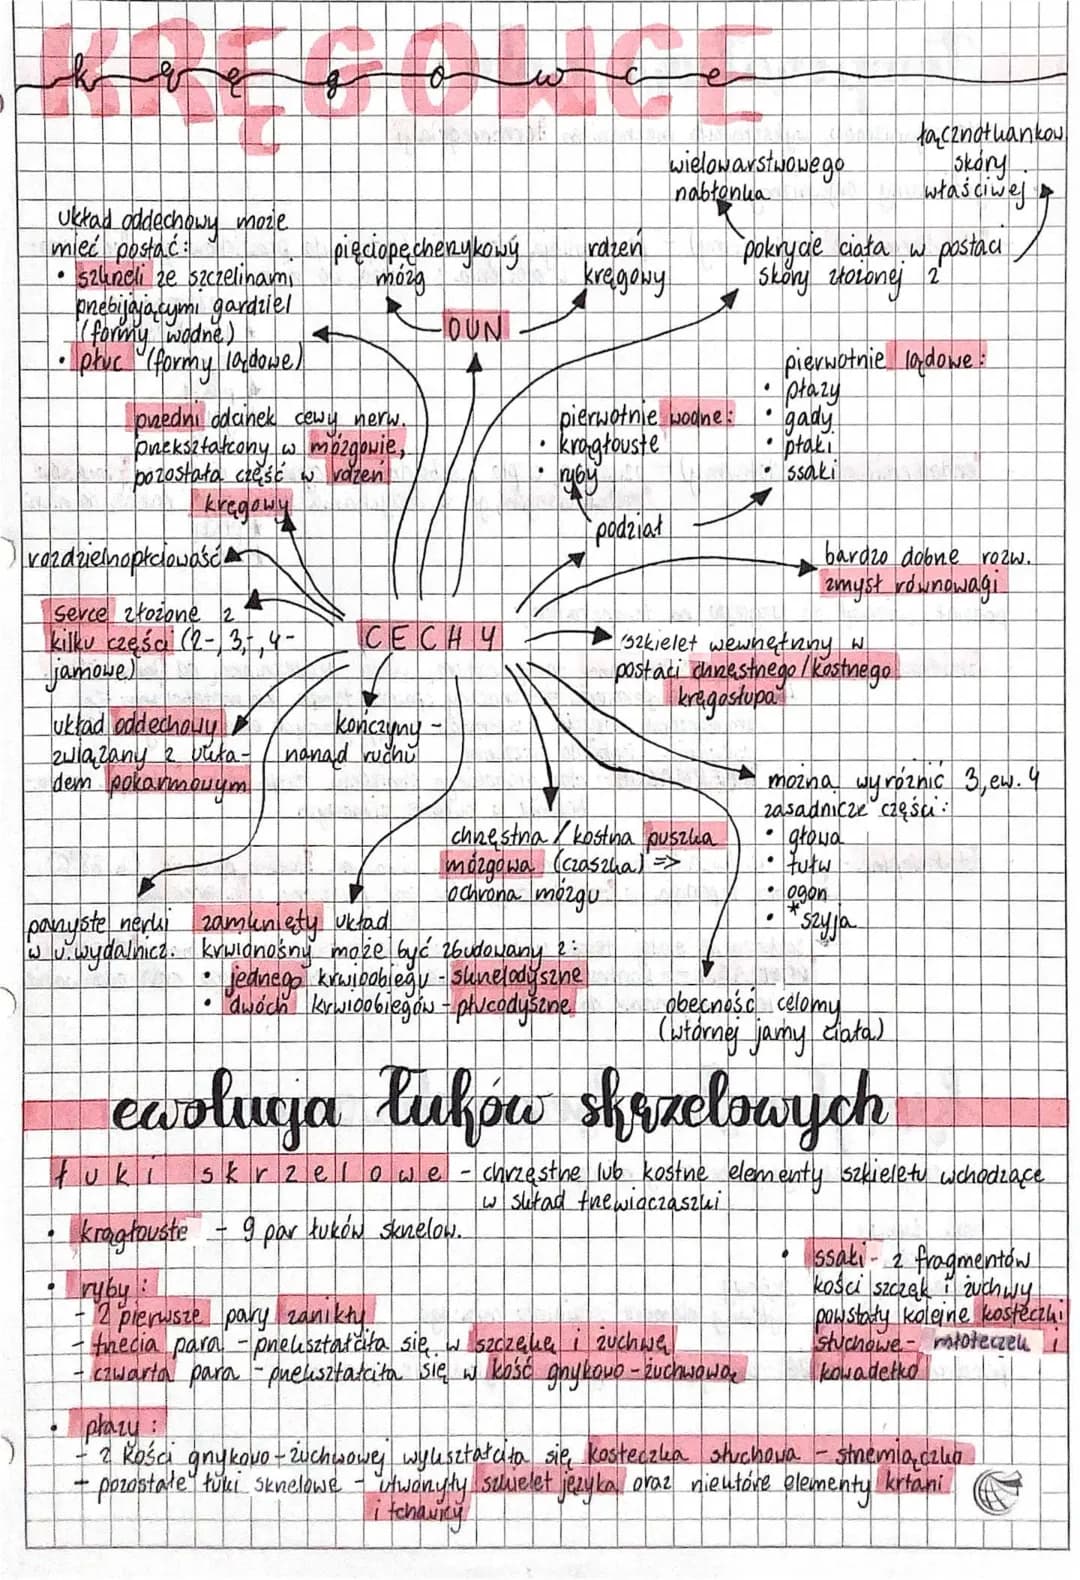 KRĘGOWCE
kręgowce
łącznotkankow.
skóry
właściwej
wielowarstwowego
nabłonka
układ oddechowy może
mieć postać:
• skrzeli ze szczelinami
przebijającymi gardziel
(formy wodne)
• płuc (formy lądowe)
pięciopęcherzykowy
mózg
rdzeń
kręgowy
OUN
pokrycie ciała w postaci
skóry złożonej z
pierwotnie lądowe:
• płazy
• gady
• ptaki
• ssaki
pierwotnie wodne:
• krągłouste
• ryby
podział
przedni odcinek cewy nerw.
przekształcony w mózgowie,
pozostała część w rdzeń
kręgowy
rozdzielnopłciowość
bardzo dobrze rozw.
zmysł równowagi
serce złożone z
kilku części (2-, 3-, 4-
jamowe)
CECHY
szkielet wewnętrzny w
postaci chrzęstnego/kostnego
kręgosłupa
układ oddechowy
związany z ukła-
dem pokarmowym
kończyny -
narząd ruchu
można wyróżnić 3, ew. 4
zasadnicze części:
• głowa
• tułw
• ogon
• *szyja
chrzęstna / kostna puszka
mózgowa (czaszka) =>
ochrona mózgu
parzyste nerki
w u. wydalnicz.
zamknięty układ
krwionośny może być zbudowany z:
• jednego krwioobiegu - skrzelodyszne
• dwóch krwioobiegów - płucodyszne
obecność celomy
(wtórnej jamy ciała)
ewolucja łuków skrzelowych
łuki skrzelowe - chrzęstne lub kostne elementy szkieletu wchodzące
w skład trzewioczaszki
• krągłouste - 9 par łuków skrzelow.
• ryby:
- 2 pierwsze pary zanikły
- trzecia para - przekształciła się w szczękę i żuchwę
- czwarta para - przekształciła się w kość gnykowo-żuchwową
• ssaki - z fragmentów
kości szczęk i żuchwy
powstały kolejne kosteczki
słuchowe - młoteczek i
kowadełko
• płazy:
- z kości gnykowo-żuchwowej wykształciła się kosteczka słuchowa - strzemiączko
- pozostałe łuki skrzelowe - utworzyły szkielet języka oraz niektóre elementy krtani
i tchawicy